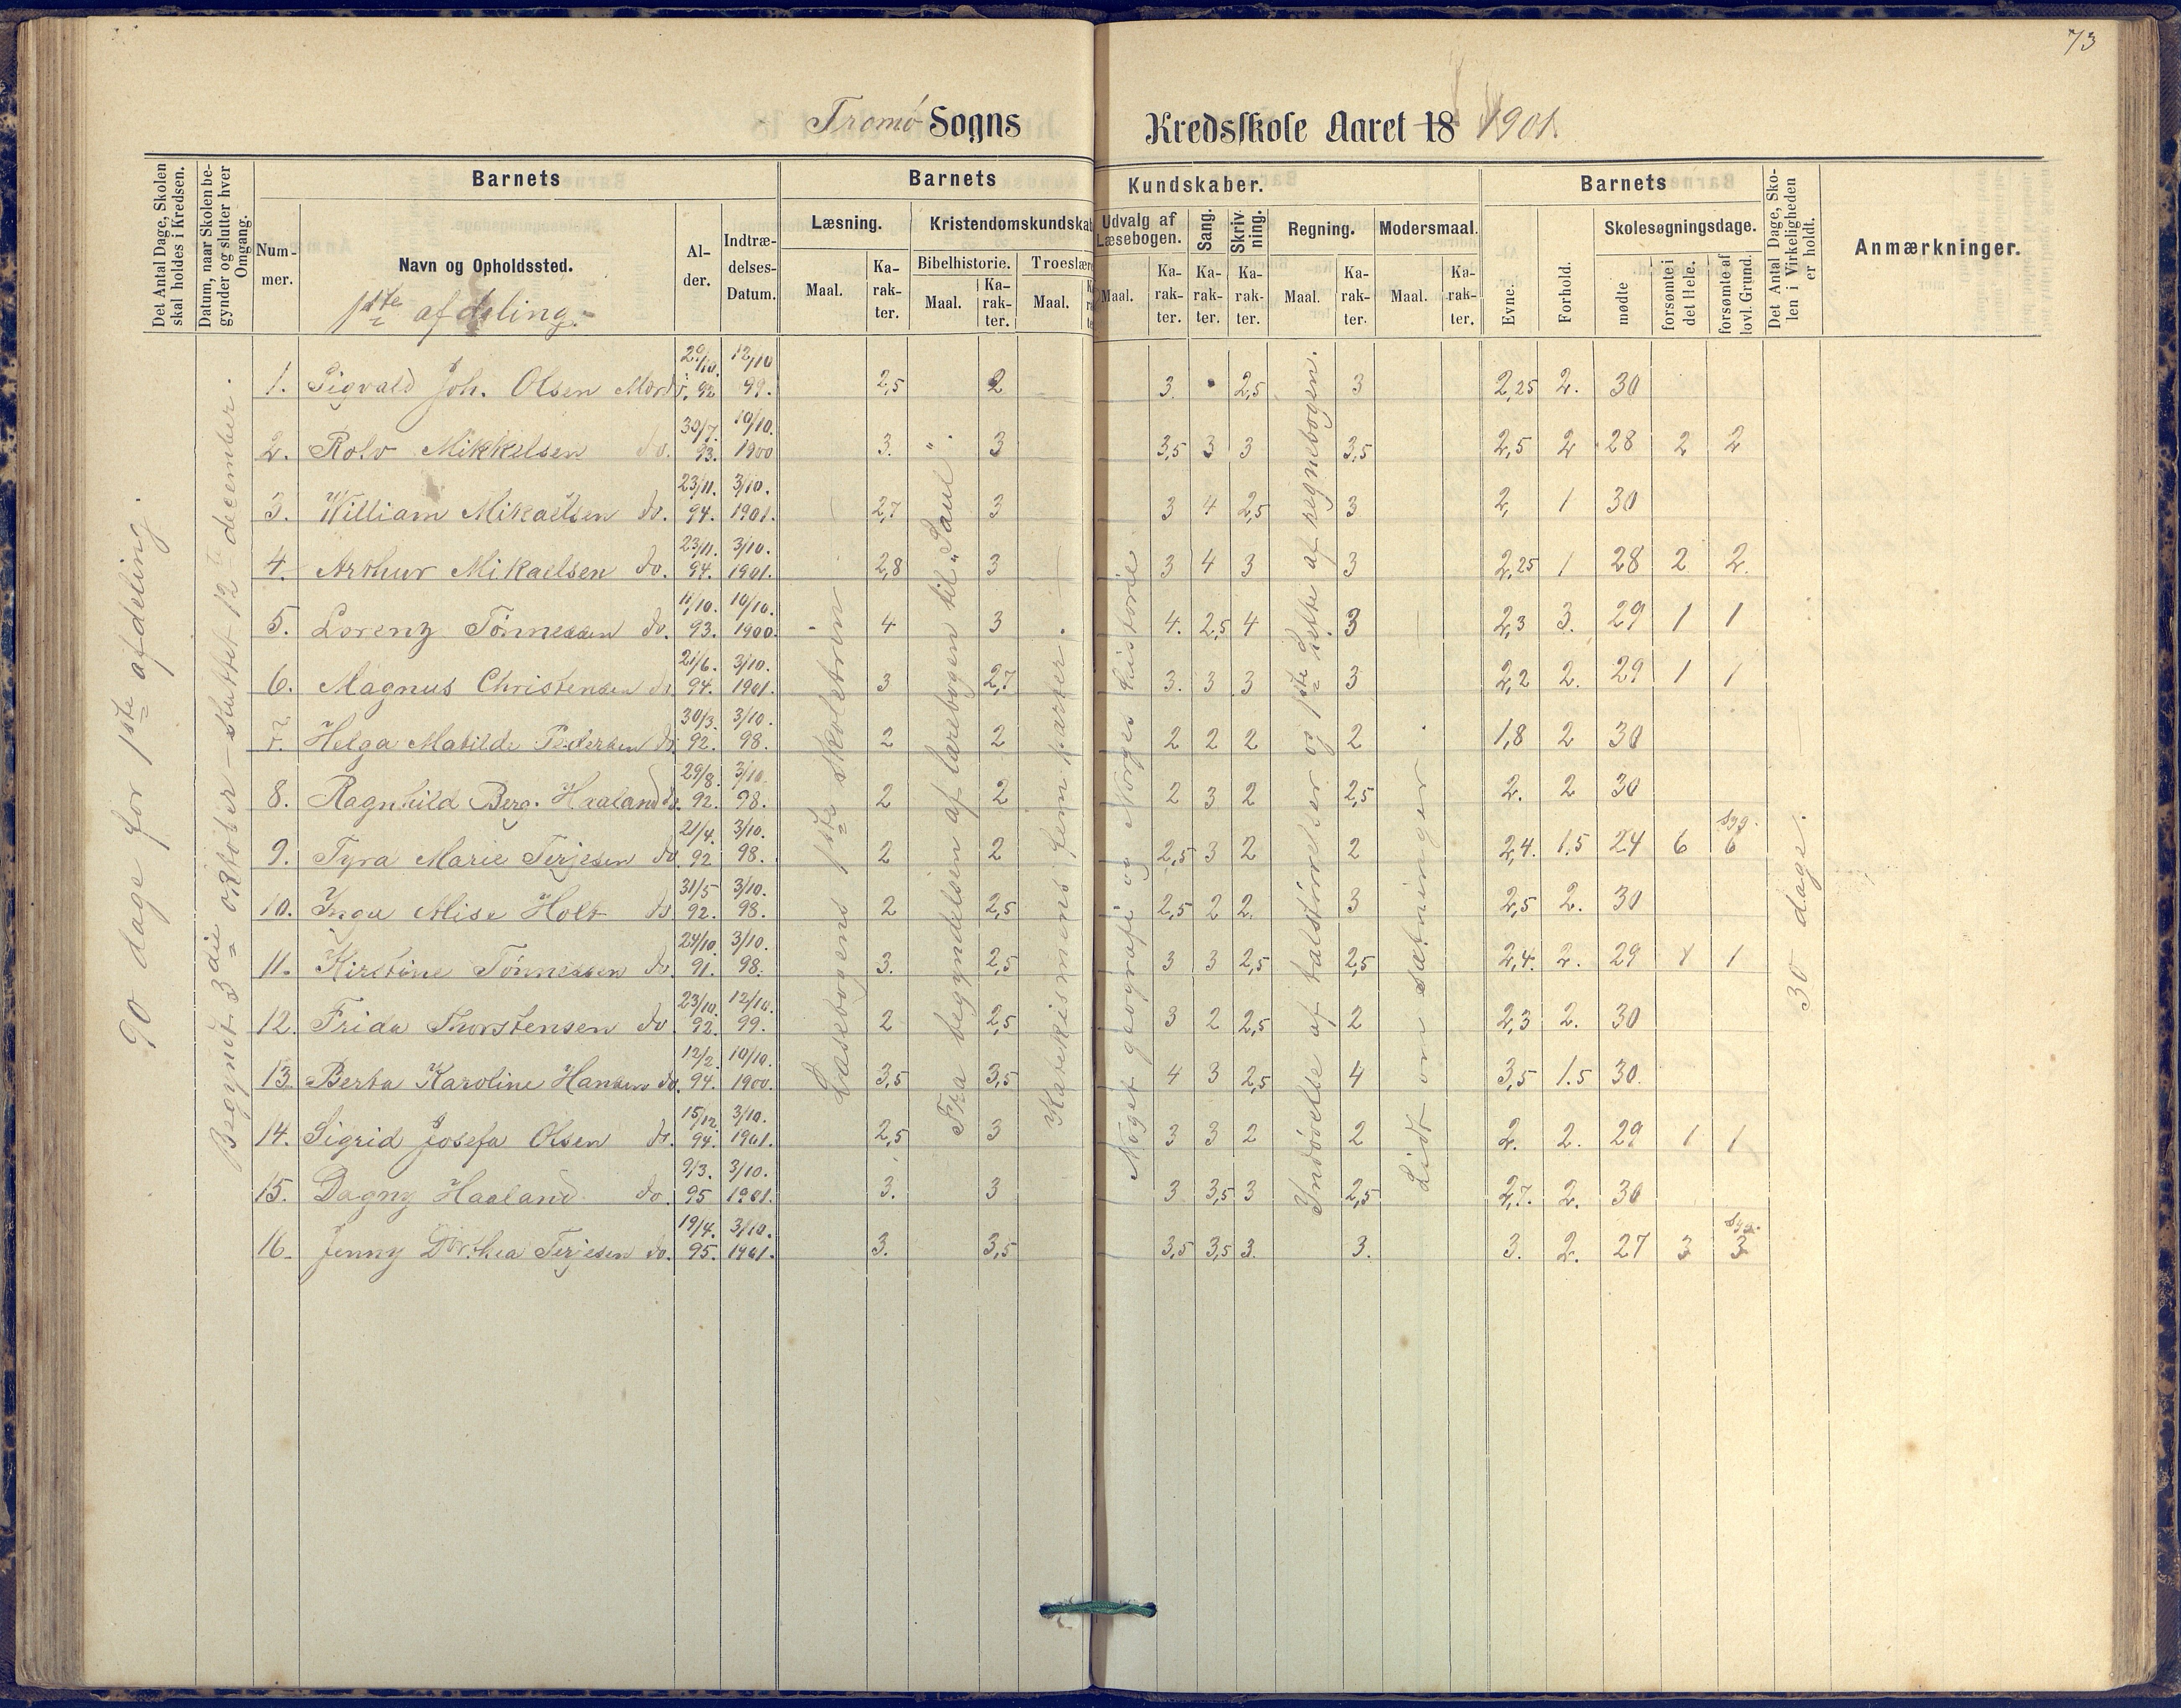 73
Tromö Sogns Kredsskole Aaret 18 1901.
Det Antal Dage, Skolen skal holdes i Kredsen.
Datum, naar Skolen begynder og slutter hver Omgang.
Barnets
Nummer.
Navn og Opholdssted.
1ste afdeling.
Alder.
Indtrædelses-Datum.
Barnets Kundskaber.
Læsning.
Maal.
Karakter.
Kristendomskundskab
Bibelhistorie.
Maal.
Karakter.
Troeslære
Maal.
Udvalg af Læsebogen.
Maal.
Karakter.
Sang.
Karakter.
Skrivning.
Karakter.
Regning.
Maal.
Karakter.
Modersmaal.
Maal.
Karakter.
Barnets
Evne.
Forhold.
Skolesøgningsdage.
mødte
forsømte i det Hele.
forsømte af lovl. Grund.
Det Antal Dage, Skolen i Virkeligheden er holdt.
Anmærkninger.
90 dage for 1ste afdeling.
Begyndt 3die oktober – sluttet 12te december.
Læsebogens 1ste skoletrin
Fra begyndelsen af lærebogen til "Saul".
Katekismens fem parter.
Noget geografi og Norges historie
Indøvelse af talstørrelser og 1ste hefte af regnebogen.
Lidt om sætninger
30 dage.
1. Sigvald Joh. Olsen 29/10. 92 12/10 99. 2,5 2 3. 2,5 3 2,25 2. 30
2. Rolv Mikkelsen do. 30/7. 93. 10/10. 1900 3. 3 3,5 3 3 3,5 2,5 2 28 2 2
3. William Mikaelsen do. 23/11. 94. 3/10. 1901. 2,7 3 3 4 2,5 3 2, 1 30
4. Arthur Mikaelsen do. 23/11. 94. 3/10. 1901. 2,8 3 3 4 3 3 2,25 1 28 2 2.
5. Lorenz Tönnessen do. 11/10. 93. 10/10. 1900. 4 3 4. 2,5 4 3 2,3 3. 29 1 1
6. Magnus Christensen do. 21/6. 94. 3/10. 1901. 3 2,7 3. 3 3 3 2,2 2. 29 1 1
7. Helga Matilde Pedersen do. 30/3. 92. 3/10. 98. 2 2 2 2 2 2 1,8 2 30
8. Ragnhild Berg. Haaland do. 29/8. 92. 3/10. 98. 2 2 2 3 2 2,5 2. 2 30
9. Tyra Marie Terjesen do. 21/4. 92 3/10. 98. 2 2 2,5 3 2 2 2,4. 1.5 24 6 syg. 6
10. Inga Alise Holt do. 31/5 92. 3/10. 98. 2 2,5 2,5 2 2. 3 2,5 2. 30
11. Kirstine Tönnessen do. 24/10. 91. 3/10. 98. 3. 2,5 3 3 2,5 2,5 2,4. 2. 29 1 1
12. Frida Thorstensen do 23/10. 92. 12/10. 99. 2 2,5 3 2 2,5 2 2,3 2. 30
13. Berta Karoline Hansen do. 12/2. 94. 10/10. 1900. 3,5 3,5 4 3 2,5 4 3,5 1.5 30.
14. Sigrid Josefa Olsen do. 15/12. 94. 3/10. 1901. 2,5 3 3 3 2 2 2. 2. 29 1 1
15. Dagny Haaland do. 9/3. 95 3/10. 1901. 3. 3 3 3,5 3 2,5 2,7. 2. 30
16. Jenny Dorthea Terjesen do. 19/4. 95. 3/10. 1901. 3. 3,5 3,5 3,5 3. 3. 3. 2. 27 3 syg. 3